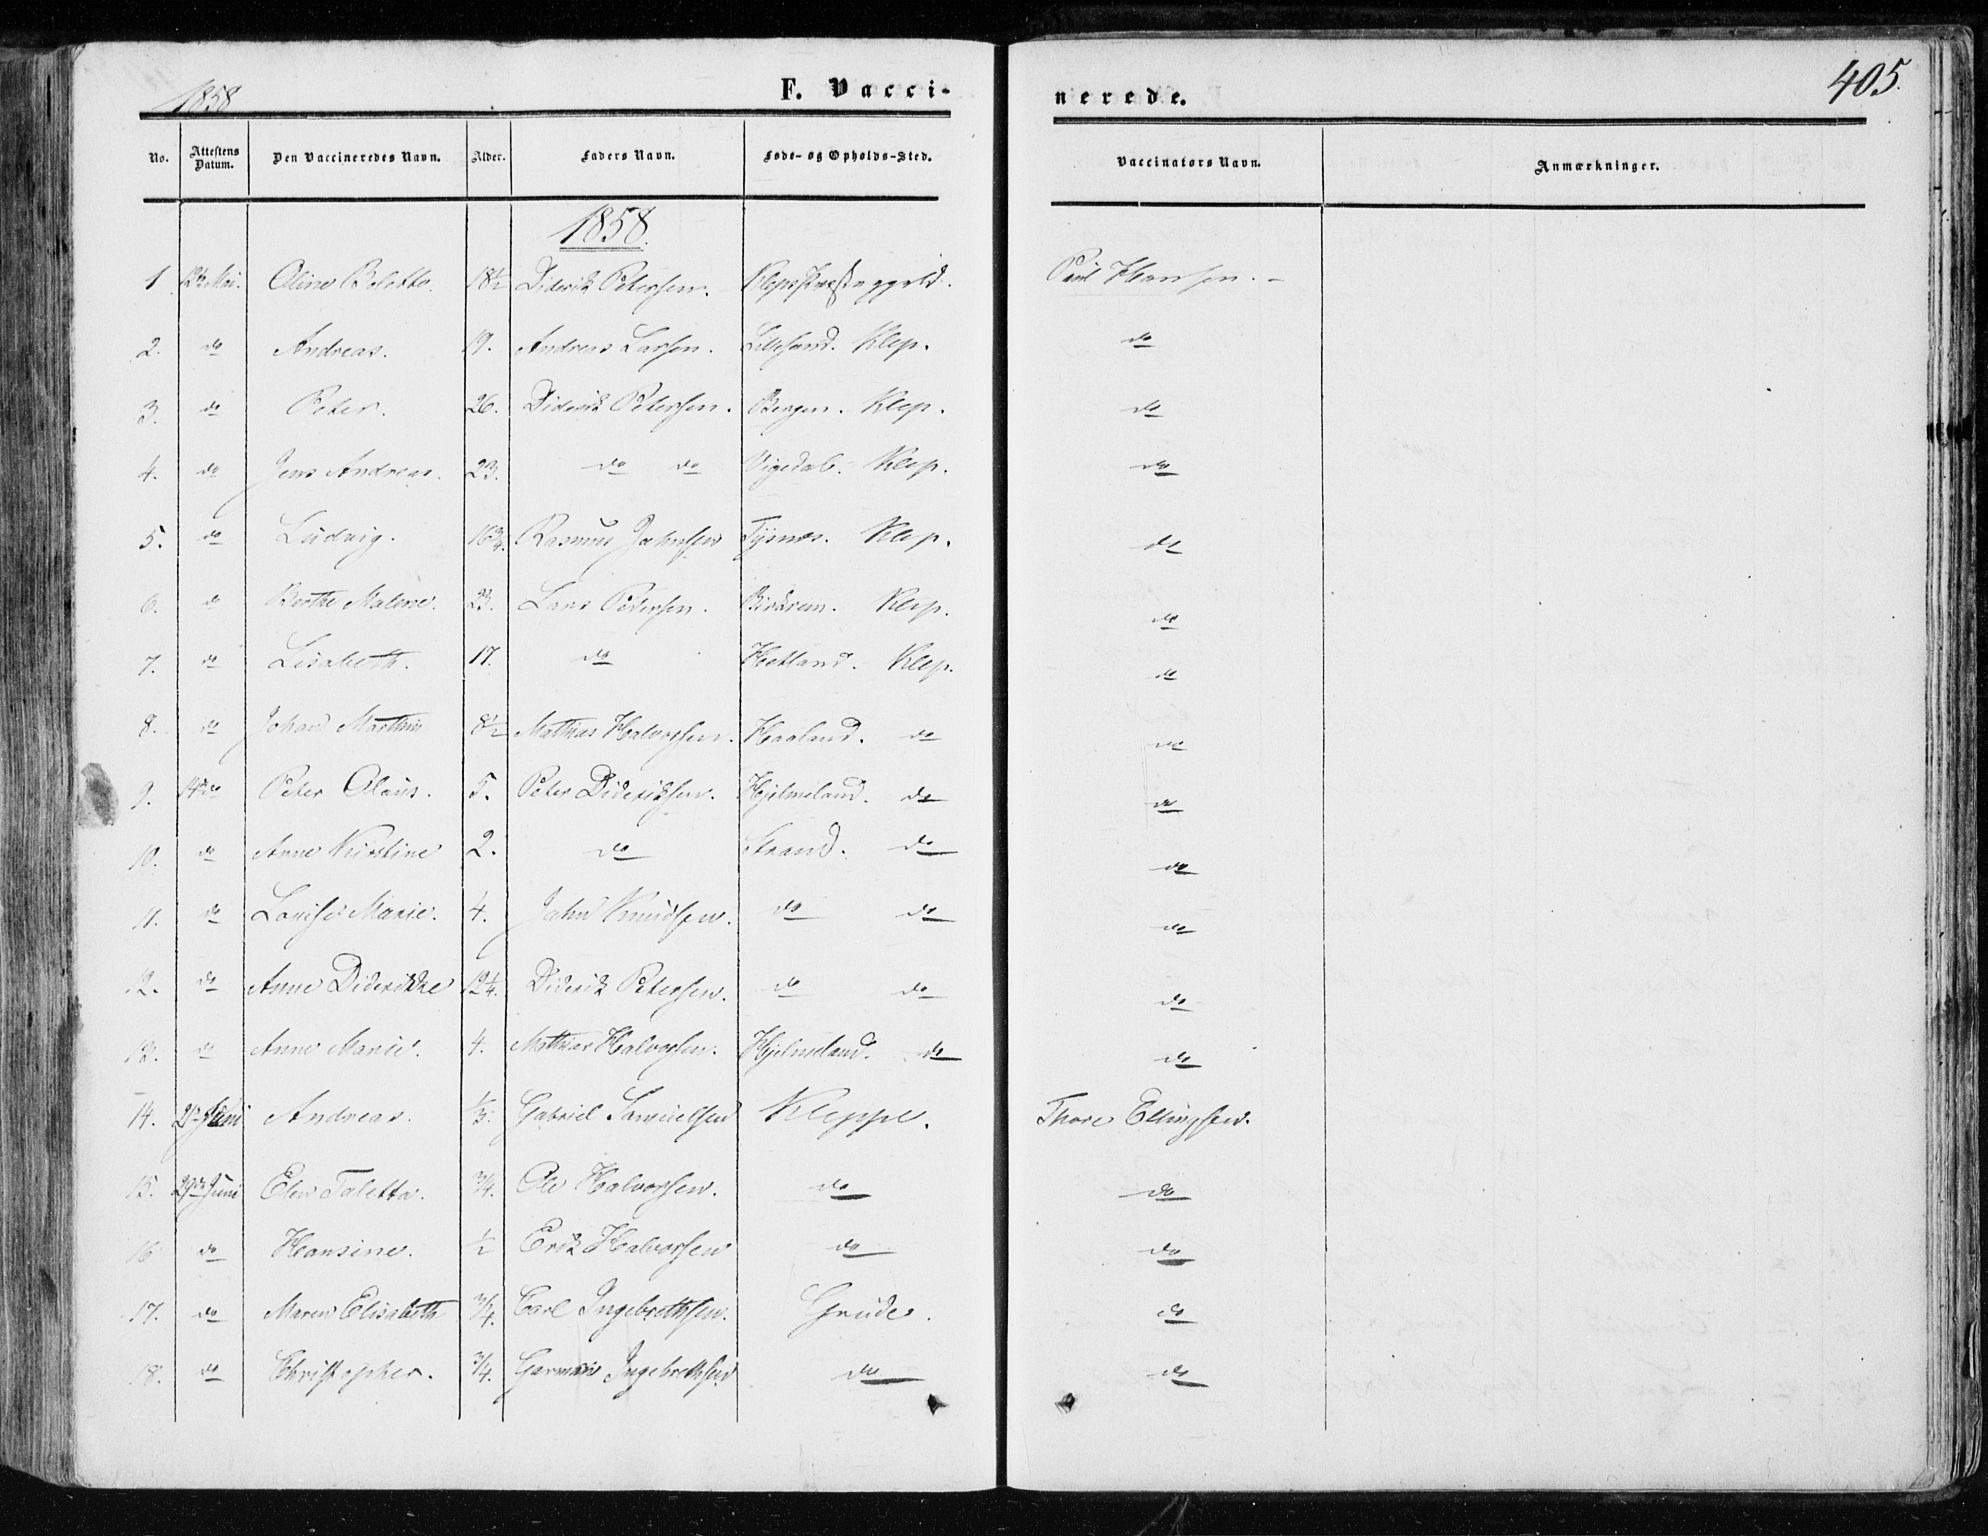 1858
F. Vacci-
nerede.
405.
No. Attestens Datum. Den Vaccineredes Navn. Alder. Faders Navn. Føde- og Opholds-Sted. Vaccinators Navn. Anmærkninger.
1858.
1 12te Mai. Oline 18½ Diderik Petersen. Paul Hansen. -
2. do Andreas. 19. Andreas Larsen. Lillesand. Klep. do
3. do Peter. 26. Diderik Petersen. Bergen. Klep. do
4. do Jens Andreas. 23. do do Vigedal. Klep. do
5. do Ludvig. 16¾. Rasmus Johnsen Tysnes. Klep. do
6. do Berthe Malene. 23. Lars Pedersen. Birkrem. Klep. do
7. do Lisabeth. 17. do Hetland. Klep. do
8. do Johan Marthin 8½ Mathias Halvorsen. Haaland. do do
9. 14de do Peter Olaus. 5. Peter Dideriksen. Hjelmeland. do do
10. do Anne Kirstine 2. do Strand. do do
11. do Lovise Marie. 4. John Knudsen. do do do
12. do Anne Diderikke 12¼. Diderik Petersen. do do do
13. do Anne Marie. 4. Mathias Halvorsen. Hjelmeland. do do
14. Juni Andreas. ⅓. Gabriel Samuelsen Kleppe. Thore Ellingsen.
15. 29de Juni Elen Taletta. ¾. Ole Halvorsen. do do
16 do Hansine. ½ Erik Halvorsen do do
17. do Maren Elisabeth ¾. Carl Ingebrethsen. Grude. do
18. do Christopher. ¾. Garman Ingebrethsen do do